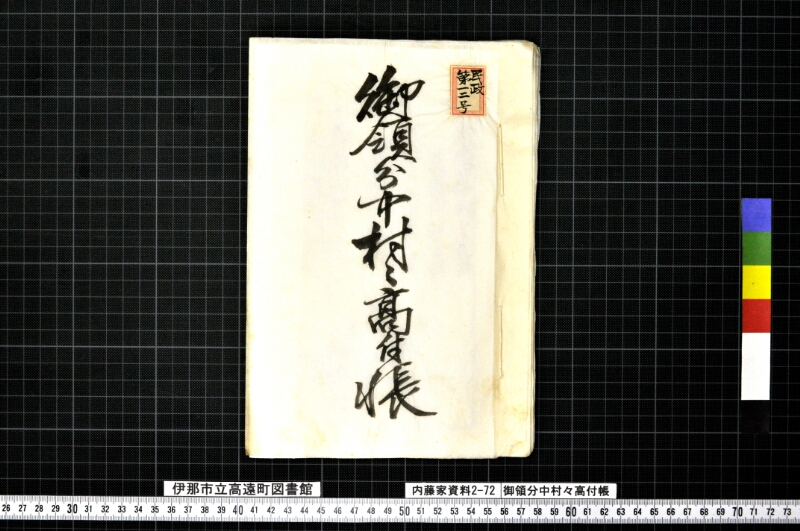 民政
第一三号
御領分中村々高付帳
伊那市立高遠町図書館
内藤家資料2-72
御領分中村々高付帳
26 27 28 29 30 31 32 33 34 35 36 37 38 39 40 41 42 43 44 45 46 47 48 49 50 51 52 53 54 55 56 57 58 59 60 61 62 63 64 65 66 67 68 69 70 71 72 73